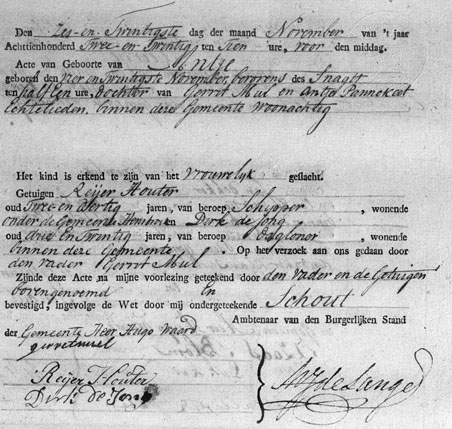 Den Zes-en-Twintigste dag der maand November van 't jaar
Achttienhonderd Twee-en-Twintig ten Tien ure, voor den middag.
Acte van Geboorte van Antje
geboren den Vier en twintigste November, des
ten half ure, Dochter van Gerrit Mul en Antje Pannekeet
Echtelieden, binnen deze Gemeente Woonachtig
Het kind is erkend te zijn van het Vrouwelyk geslacht.
Getuigen Reijer Houter
oud Twee en dertig jaren, van beroep Schipper, wonende
onder de Gemeente en Dirk de Jong
oud drie en Twintig jaren, van beroep Daglonor, wonende
binnen deze Gemeente. Op het verzoek aan ons gedaan door
den Vader Gerrit Mul
Zijnde deze Acte na mijne voorlezing geteekend door den Vader en de Getuigen
bovengenoemd En
bevestigd, ingevolge de Wet door mij ondergeteekende Schout
Ambtenaar van den Burgerlijken Stand
der Gemeente Heer Hugo Waard
gerret mul
Reijer Houter
Dirk de Jong
de Lange